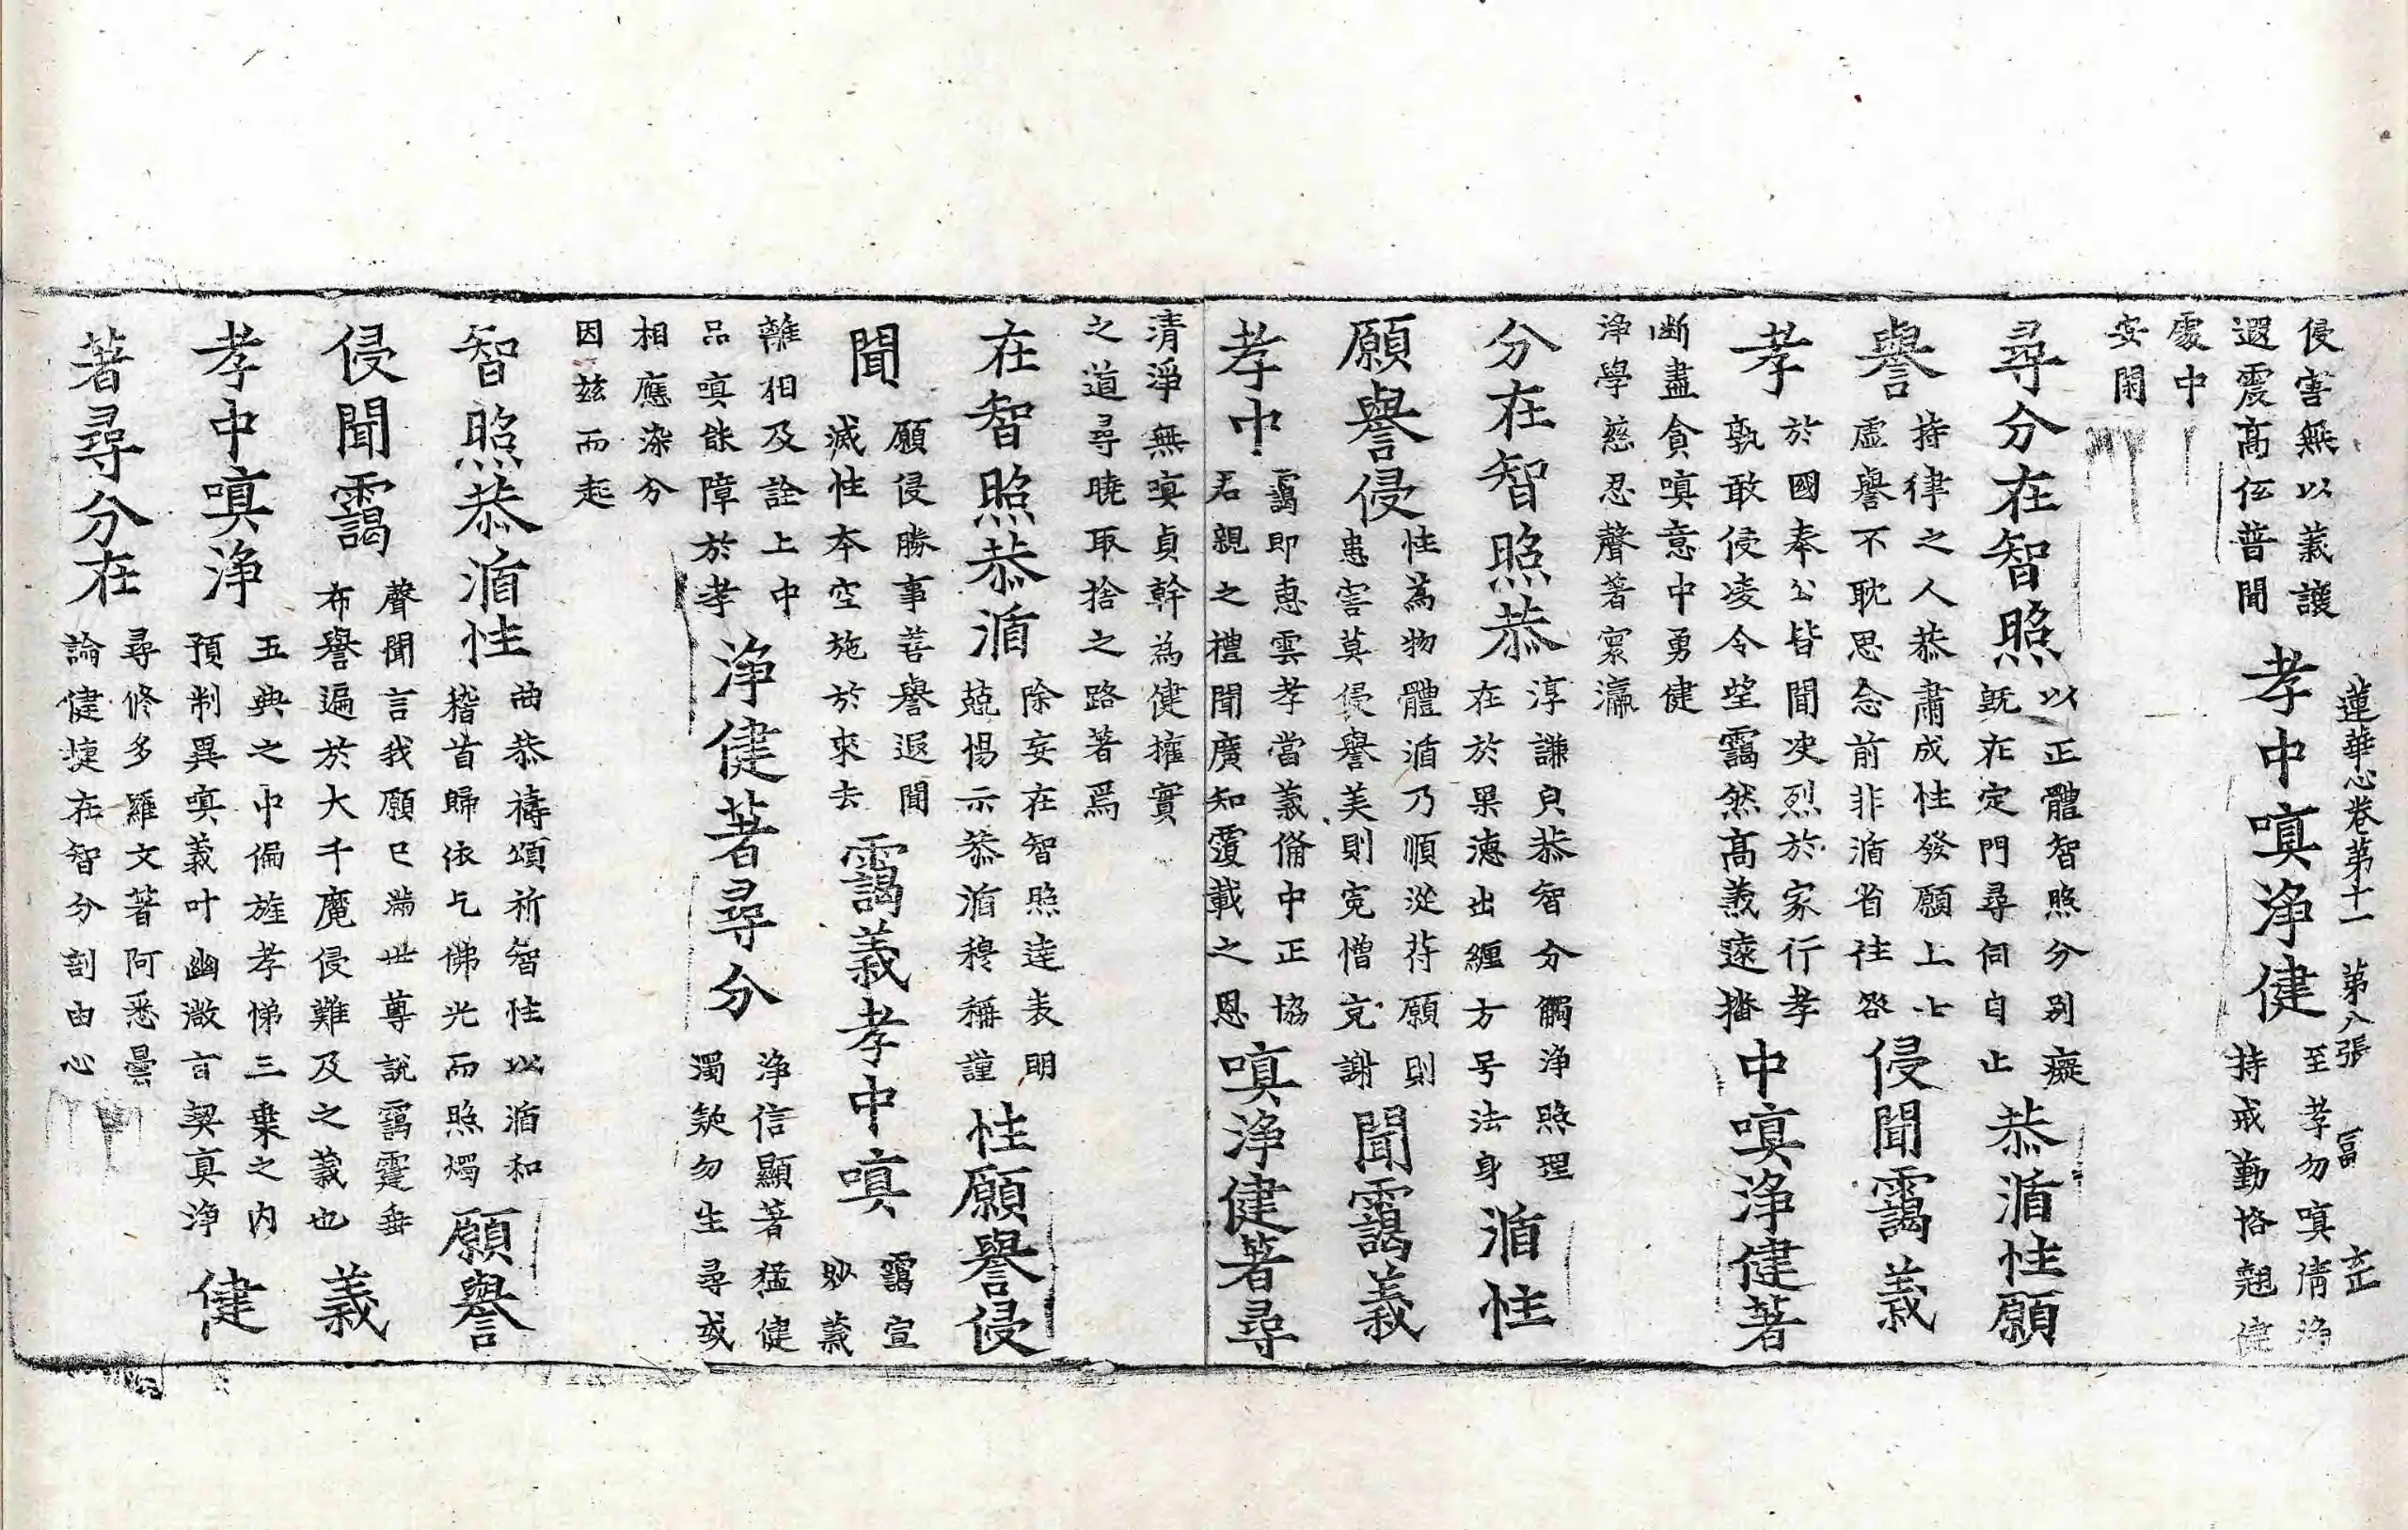 侵害無以義護
遐震高位普聞
孝中嗔淨健
至孝勿嗔清淨
持戒勤恪翹健
處中
安閑
蓮華心卷第十一 第八張 冨
尋分在智照
以正體智照分別癡
既在定門尋伺自止
恭循性願
譽
持律之人恭肅成性發願上士
虛譽不耽思念前非循省往咎
侵聞靄義
孝
於國奉公皆聞决烈於家行孝
孰敢侵凌令望靄然高義遠播
中嗔淨健著
断盡貪嗔意中勇健
淨學慈忍聲著寰瀛
分在智照恭
淳謙良恭智分觸淨照理
在於果德出纏方号法身
循性
願譽侵
性為物體循乃順從苻願則
患害莫侵譽美則寃憎克謝
聞靄義
孝中
靄即惠雲孝當義俻中正協
君親之禮聞廣知覆載之恩
嗔淨健著尋
清淨無嗔貞幹為健擁實
之道尋曉取捨之路著焉
在智照恭循
除妄在智照達表明
兢惕示恭循穆稱謹
性願譽侵
聞
願侵勝事善譽遐聞
滅性本空施於來去
靄義孝中嗔
靄宣
妙義
離相及詮上中
品嗔能障於孝
淨健著尋分
淨信顯著猛健
濁欸勿生尋或
相應染分
因茲而起
智照恭循性
曲恭禱頌祈智性以循和
稽首歸依乞佛光而照燭
願譽
侵聞靄
聲聞言我願已滿世尊說靄霆垂
布譽遍於大千魔侵難及之義也
義
孝中嗔淨
五典之中偏旌孝悌三乗之內
預制異嗔義叶幽微言契真淨
健
著尋分在
尋修多羅文著阿悉曇
論健捷在智分剖由心